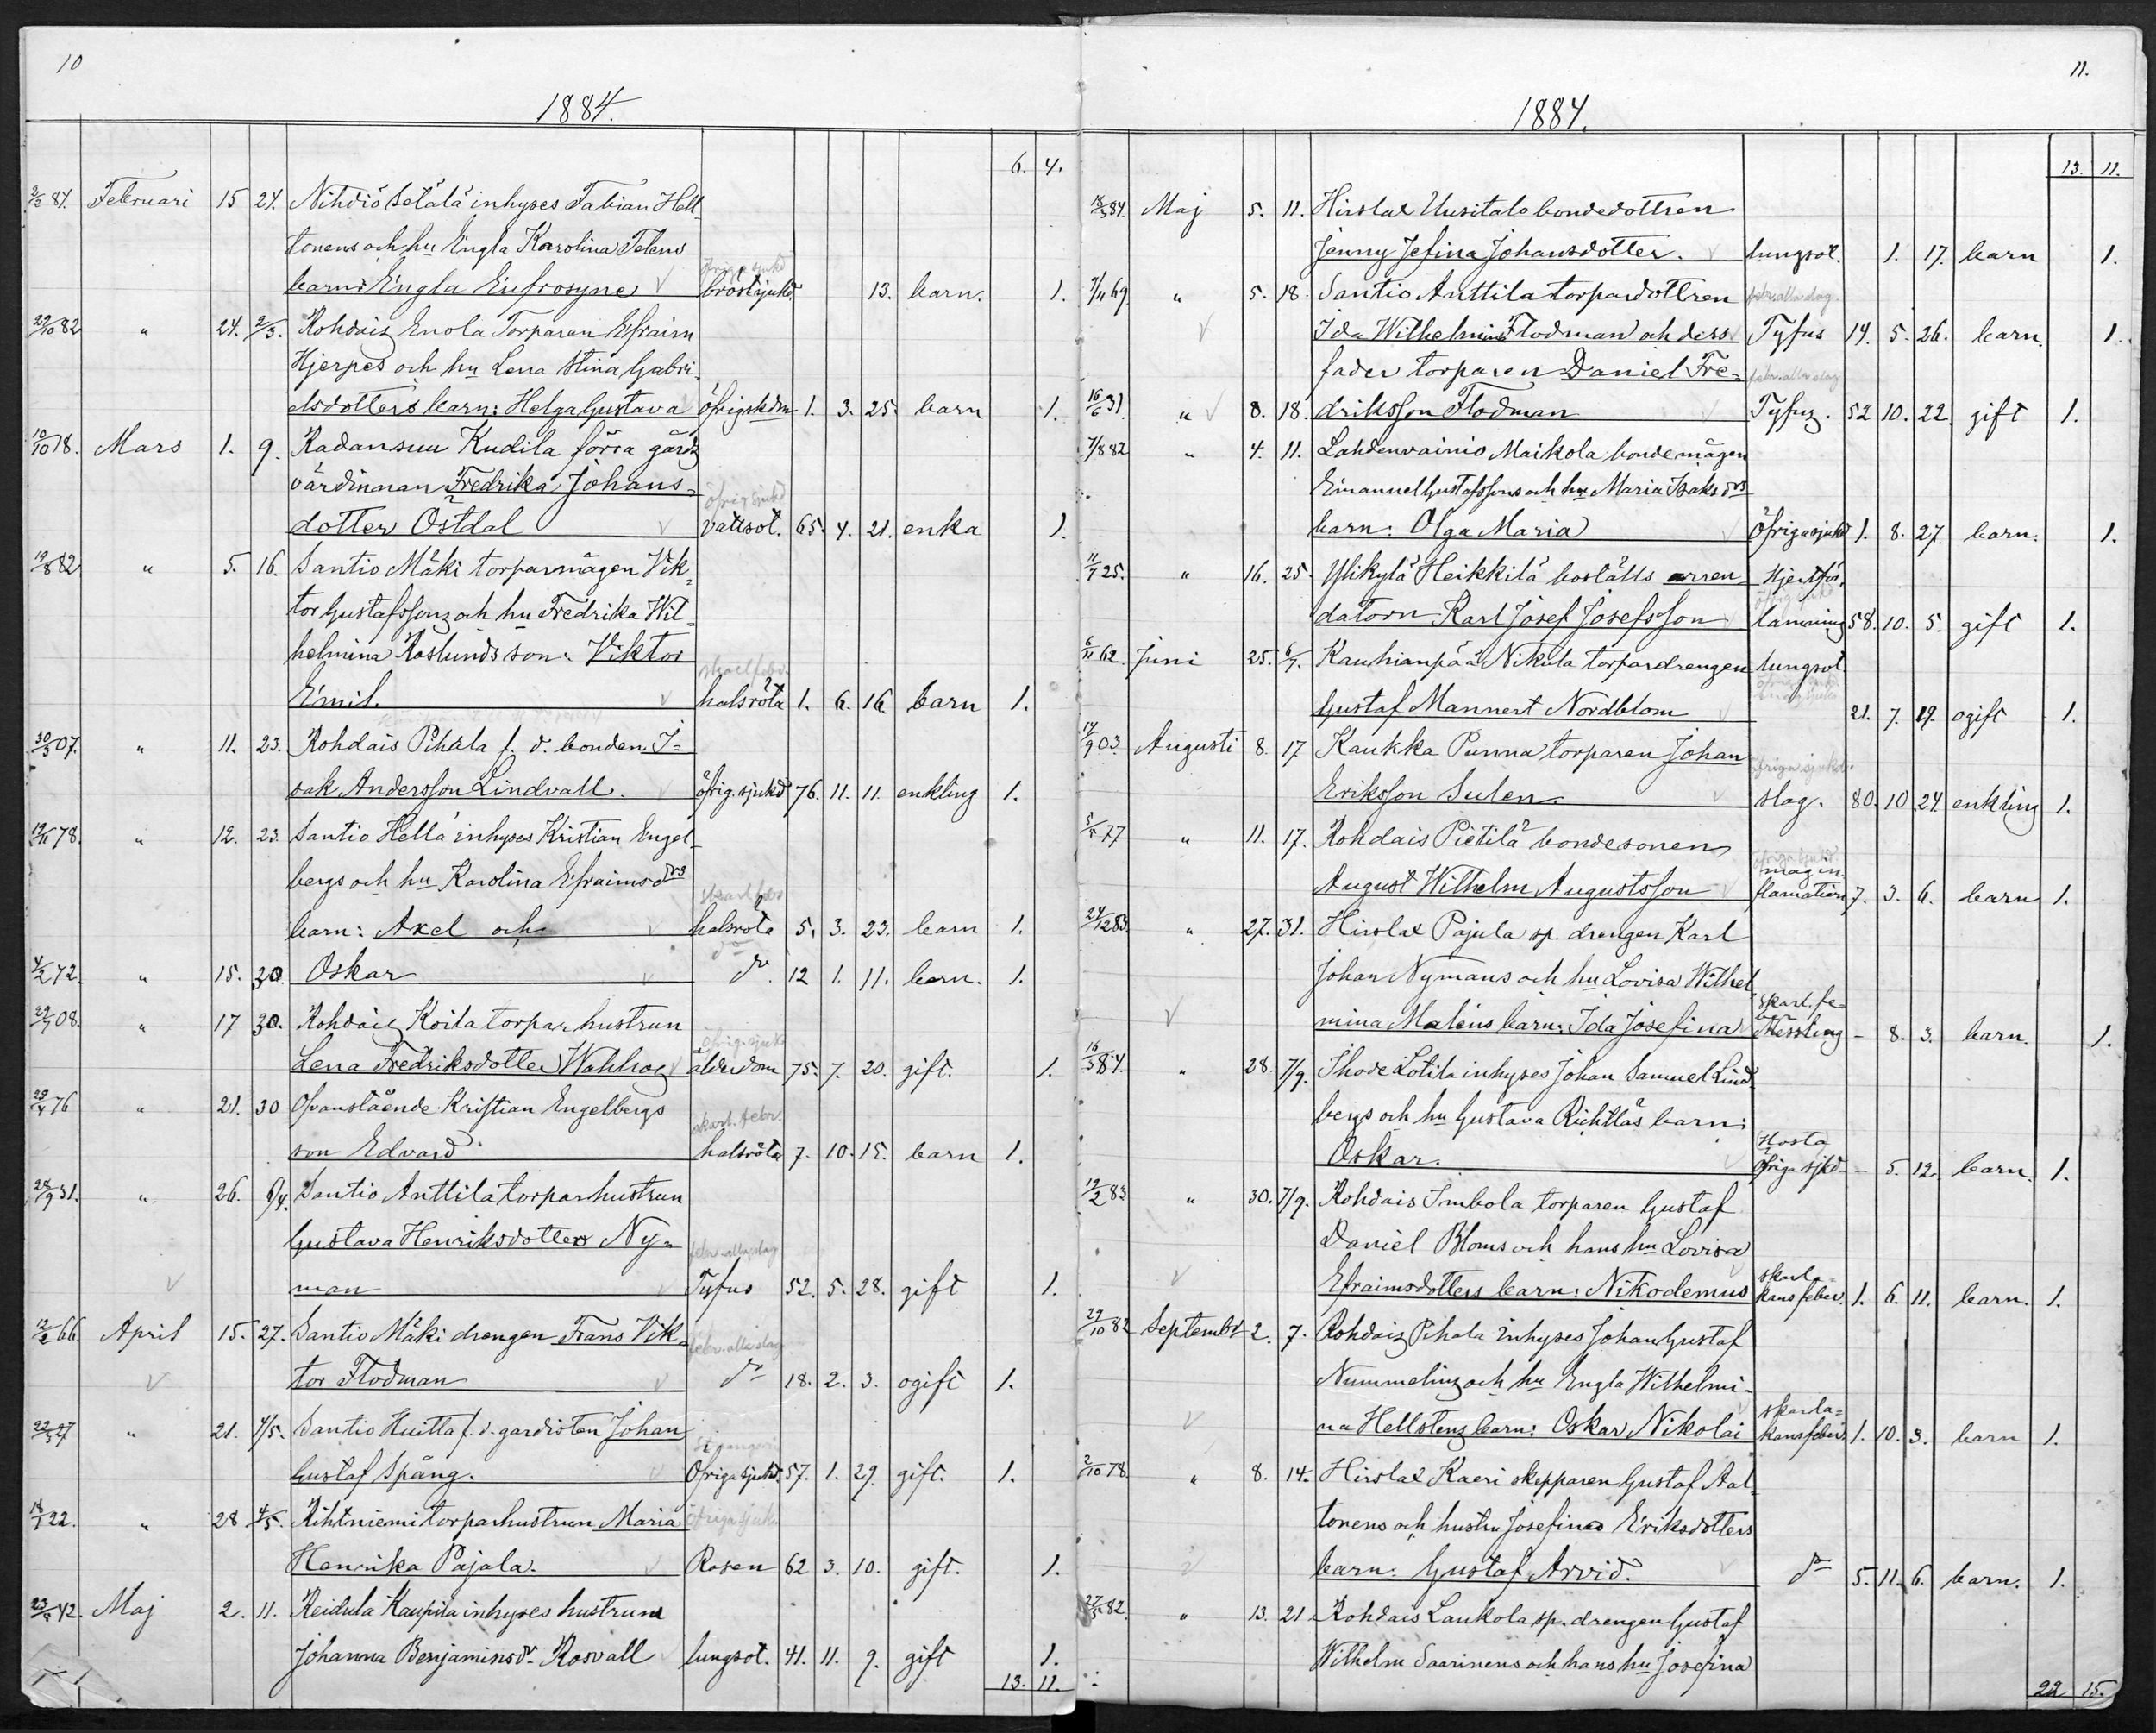 10
1884.
6. 4.
2/2 84. Februari 15 24. Nihdiö Setälä inhyses Fabian Hell
tonens och hu Engla Karolina Telens
öfriga sjukd
barn: Engla Eufrosyne bröstsjukd. 13. barn. 1.
29/10 82 " 24. 2/3. Rohdais Enola Torparen Efraim
Hjerpes och hu Lena Stina Gabri
elsdotters barn: Helga Gustava öfrig skdm 1. 3. 25. barn 1.
10/10 18. Mars 1. 9. Radansuu Kudila förra gårds
värdinnan Fredrika Johans-
öfrig sjukd
dotter Ostdal vattsot. 65. 4. 21. enka 1.
19/8 82 " 5. 16. Santio Mäki torparmågen Vik
tor Gustafssons och hu Fredrika Wil
helmina Roslunds son: Viktor
Emil. halsröta 1. 6. 16. barn 1.
30/3 07. " 11. 23. Rohdais Pihala f. d. bonden I=
sak Andersson Lindvall. öfrig. sjukd 76. 11. 11. enkling 1.
19/11 78. " 12. 23. Santio Hellä inhyses Kristian Engel
bergs och hu Karolina Efraimsdrs
skarl. febr
barn: Axel och halsröta 5. 3. 23. barn 1.
do
4/2 72. " 15. 30. Oskar do. 12 1. 11. barn. 1.
27/7 08. " 17 30. Rohdais Koila torpar hustrun
öfrig sjukd
Lena Fredriksdotter Wahlroos ålderdom 75. 7. 20. gift. 1.
29/4 76 " 21. 30 Ofvanstående Kristian Engelbergs
skarl. febr.
son Edvard halsröta 7. 10. 15. barn 1.
28/9 31. " 26. 6/4. Santio Anttila torparhustrun
Gustava Henriksdotter Ny=
febr. alla slag
man Tyfus 52. 5. 28. gift 1.
12/2 66. April 15. 27. Santio Mäki drengen Frans Vik
febr. alla slag
tor Flodman do 18. 2. 3. ogift 1.
22/2 27 " 21. 4/5. Santio Huitta f. d. gardisten Johan
Gustaf Spång. Öfriga sjukd. 57. 1. 29. gift. 1.
18/1 22. " 28 4/5. Rihtniemi torparhustrun Maria öfriga sjukd
Henrika Pajala. Rosen 62 3. 10. gift. 1.
23/5 42. Maj 2. 11. Reidula Kaupila inhyses hustrun
Johanna Benjaminsdr. Rosvall lungsot. 41. 11. 9. gift 1.
13. 11.
11.
1884.
13. 11.
18/3 84. Maj 5. 11. Hirslax Uusitalo bondedottren
Jenny Jefina Johansdotter. lungsot. 1. 17. barn 1.
7/11 69. " 5. 18. Santio Anttila torpardottren febr. alla slag.
Ida Wilhelmina Flodman och dess Tyfus 14. 5. 26. barn. 1.
fader torparen Daniel Fre= febr. alla slag
16/6 31. " 8. 18. driksson Flodman Tyfus. 52 10. 22. gift 1.
7/8 82 " 4. 11. Lahdenvainio Maikola bondemågen
Emanuel Gustafssons och hu Maria Isaksdrs
barn: Olga Maria Öfriga sjukd 1. 8. 27. barn. 1.
11/7 25. " 16. 25. Ylikylä Heikkilä boställs arren Hjertför
datorn Karl Josef Josefsson lamning 58. 10. 5. gift 1.
6/11 62. Juni 25. 6/7. Kauhianpää Nikula torpardrengen lungsot
Gustaf Mannert Nordblom 21. 7. 19. ogift 1.
14/9 03. Augusti 8. 17 Kaukka Punna torparen Johan
öfriga sjukd.
Eriksson Sulen. slag. 80. 10 24. enkling 1.
5/5 77 " 11. 17. Rohdais Pietilä bondesonen
öfriga sjukd.
magin
August Wilhelm Augustsson flamation 7. 3. 6. barn 1.
24/12 83. " 27. 31. Hirslax Pajula sp. drengen Karl
Johan Nymans och hu Lovisa Wilhel
skarl. fe=
mina Malens barn: Ida Josefina Messling - 8. 3. barn. 1.
16/3 84. " 28. 7/9. Ihode Lotila inhyses Johan Samuel Lind
bergs och hu Gustava Richtlås barn:
Hosta
Oskar. öfriga sjkd - 5. 12. barn. 1.
19/2 83 " 30. 7/9. Rohdais Imbola torparen Gustaf
Daniel Bloms och hans hu Lovisa
skarla=
Efraimsdotters barn: Nikodemus kans feber. 1. 6. 11. barn. 1.
29/10 82 Septembr 2. 7. Rohdais Pihala inhyses Johan Gustaf
Nummelins och hu Engla Wilhelmi-
skarla=
na Hellstens barn: Oskar Nikolai kansfeber 1. 10. 3. barn 1.
2/10 78. " 8. 14. Hirslax Kaeri skepparen Gustaf Aal
tonens och hustru Josefina Eriksdotters
barn: Gustaf Arvid. do 5. 11. 6. barn. 1.
27/5 82. " 13. 21. Rohdais Laukola sp. drengen Gustaf
Wilhelm Saarinens och hans hu Josefina
22 15.